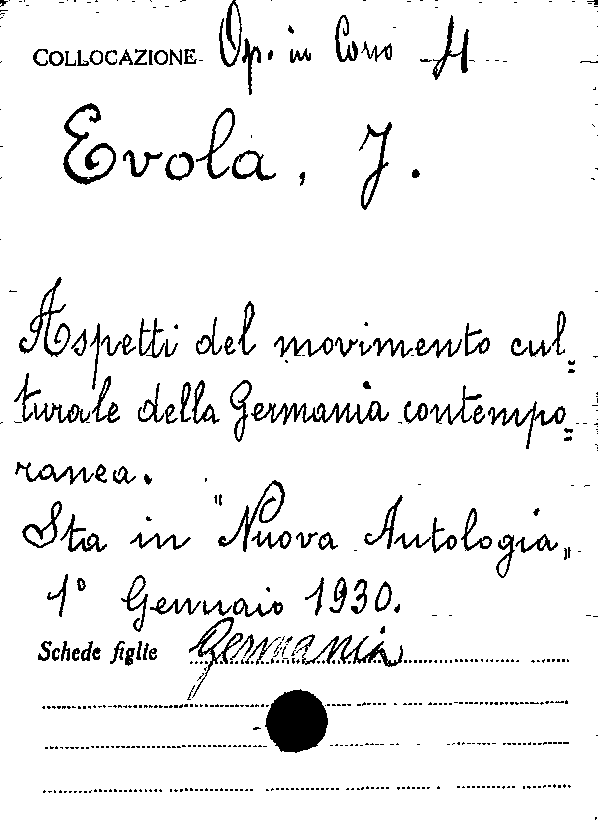 COLLOCAZIONE Op. in Corso H
Evola, J.
Aspetti del movimento cul=
turale della Germania contempo=
ranea.
Sta in "Nuova Antologia„
1° Gennaio 1930.
Schede figlie Germania